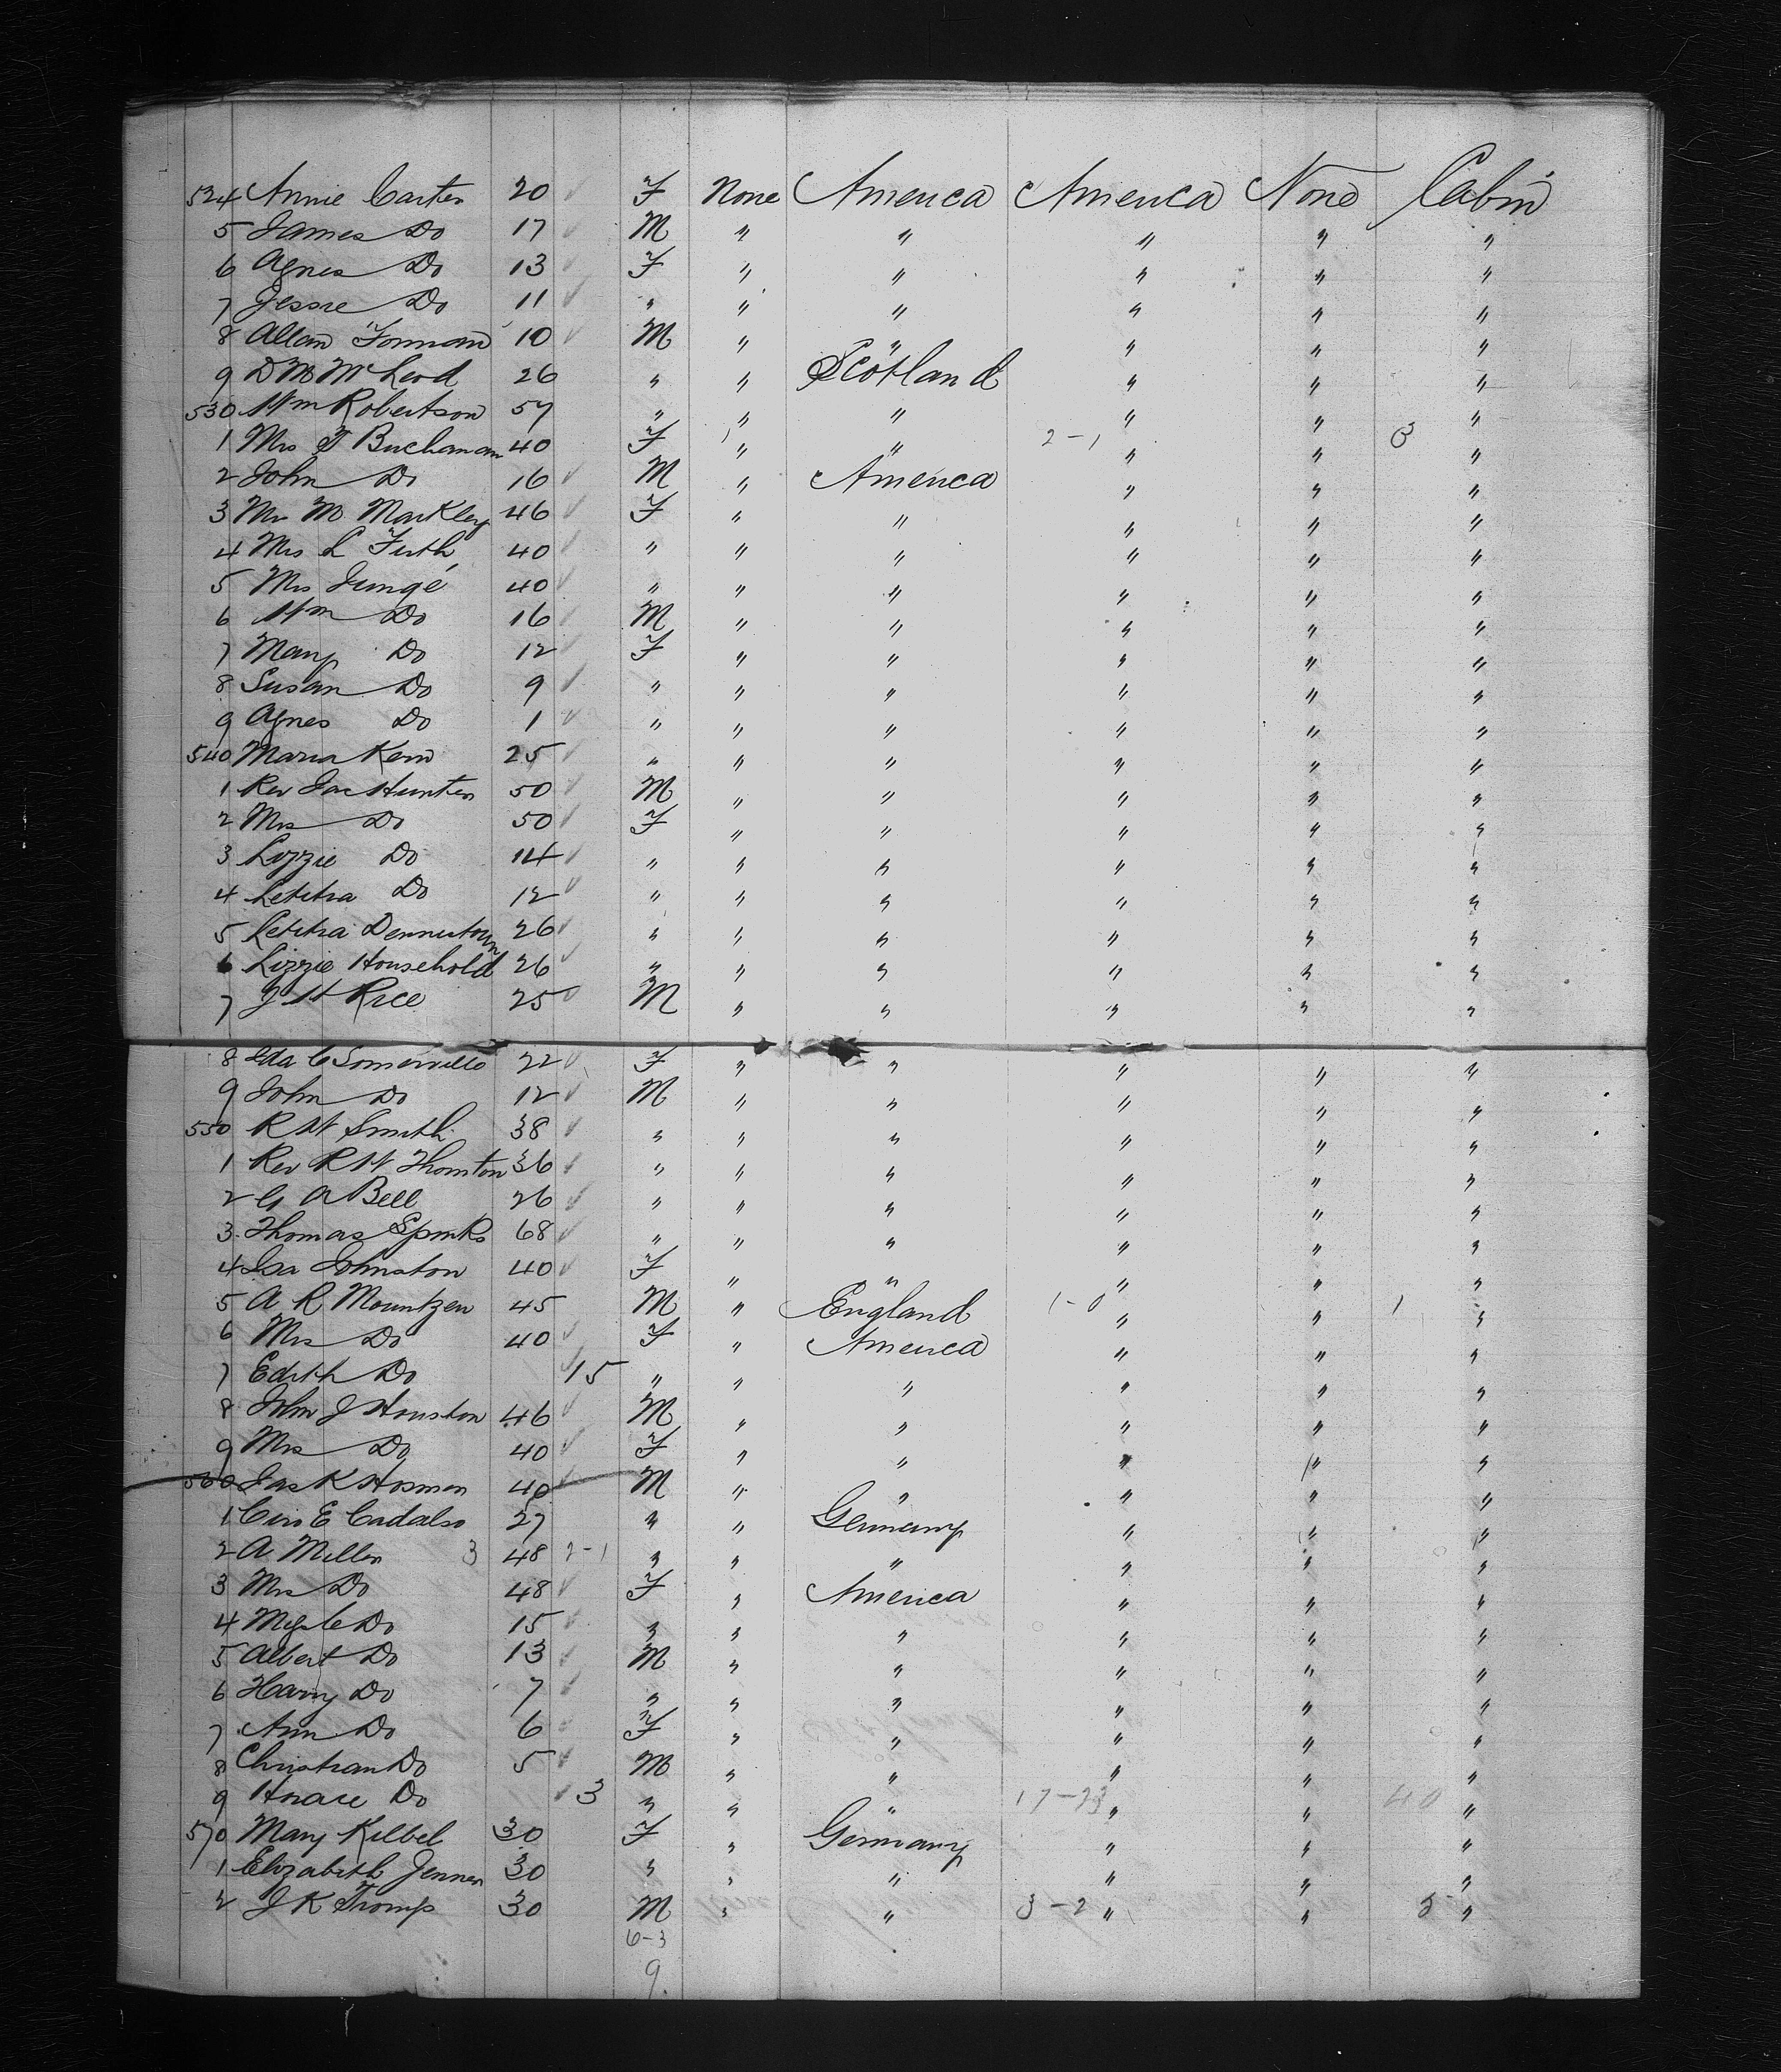 524 Annie Carter 20 F None America America None Cabin
5 James Do 17 M " " " " "
6 Agnes Do 13 F " " " " "
7 Jessie Do 11 " " " " " "
8 Allan Forman 10 M " " " " "
9 D M McLeod 26 " " Scotland " " "
530 Wm Robertson 57 " " " " " "
1 Mrs T Buchanan 40 F " " 2-1 " " 3 "
2 John Do 16 M " America " " "
3 Mrs M Markley 46 F " " " " "
4 Mrs L Firth 40 " " " " " "
5 Mrs Jungé 40 " " " " " "
6 Wm Do 16 M " " " " "
7 Mary Do 12 F " " " " "
8 Susan Do 9 " " " " " "
9 Agnes Do 1 " " " " " "
540 Maria Kern 25 " " " " " "
1 Rev Jas Hunter 50 M " " " " "
2 Mrs Do 50 F " " " " "
3 Lizzie Do 14 " " " " " "
4 Letitia Do 12 " " " " " "
5 Letitia Dennistoun 26 " " " " " "
6 Lizzie Household 26 " " " " " "
7 J H Rice 25 M " " " " "
8 Ida C Somerville 22 F " " " " "
9 John Do 12 M " " " " "
550 R W Smith 38 " " " " " "
1 Rev R W Thornton 36 " " " " " "
2 G A Bell 26 " " " " " "
3 Thomas Spinks 68 " " " " " "
4 Isa Johnston 40 F " " " " "
5 A R Mountzen 45 M " England 1-0 " " 1 "
6 Mrs Do 40 F " America " " "
7 Edith Do 15 " " " " " "
8 John J Houston 46 M " " " " "
9 Mrs Do 40 F " " " " "
560 Jas K Hosmer 40 M " " " " "
1 E Cadalso 27 " " Germany " " "
2 A Miller 3 48 2-1 " " " " " "
3 Mrs Do 48 F " America " " "
4 Do 15 " " " " " "
5 Albert Do 13 M " " " " "
6 Harry Do 7 " " " " " "
7 Ann Do 6 F " " " " "
8 Christian Do 5 M " " " " "
9 Horace Do 3 " " " 17-23 " " 40 "
570 Mary Kelbel 30 F " Germany " " "
1 Elizabeth Jenner 30 " " " " " "
2 J K Tromp 30 M " " 3-2 " " 5 "
6-3
9